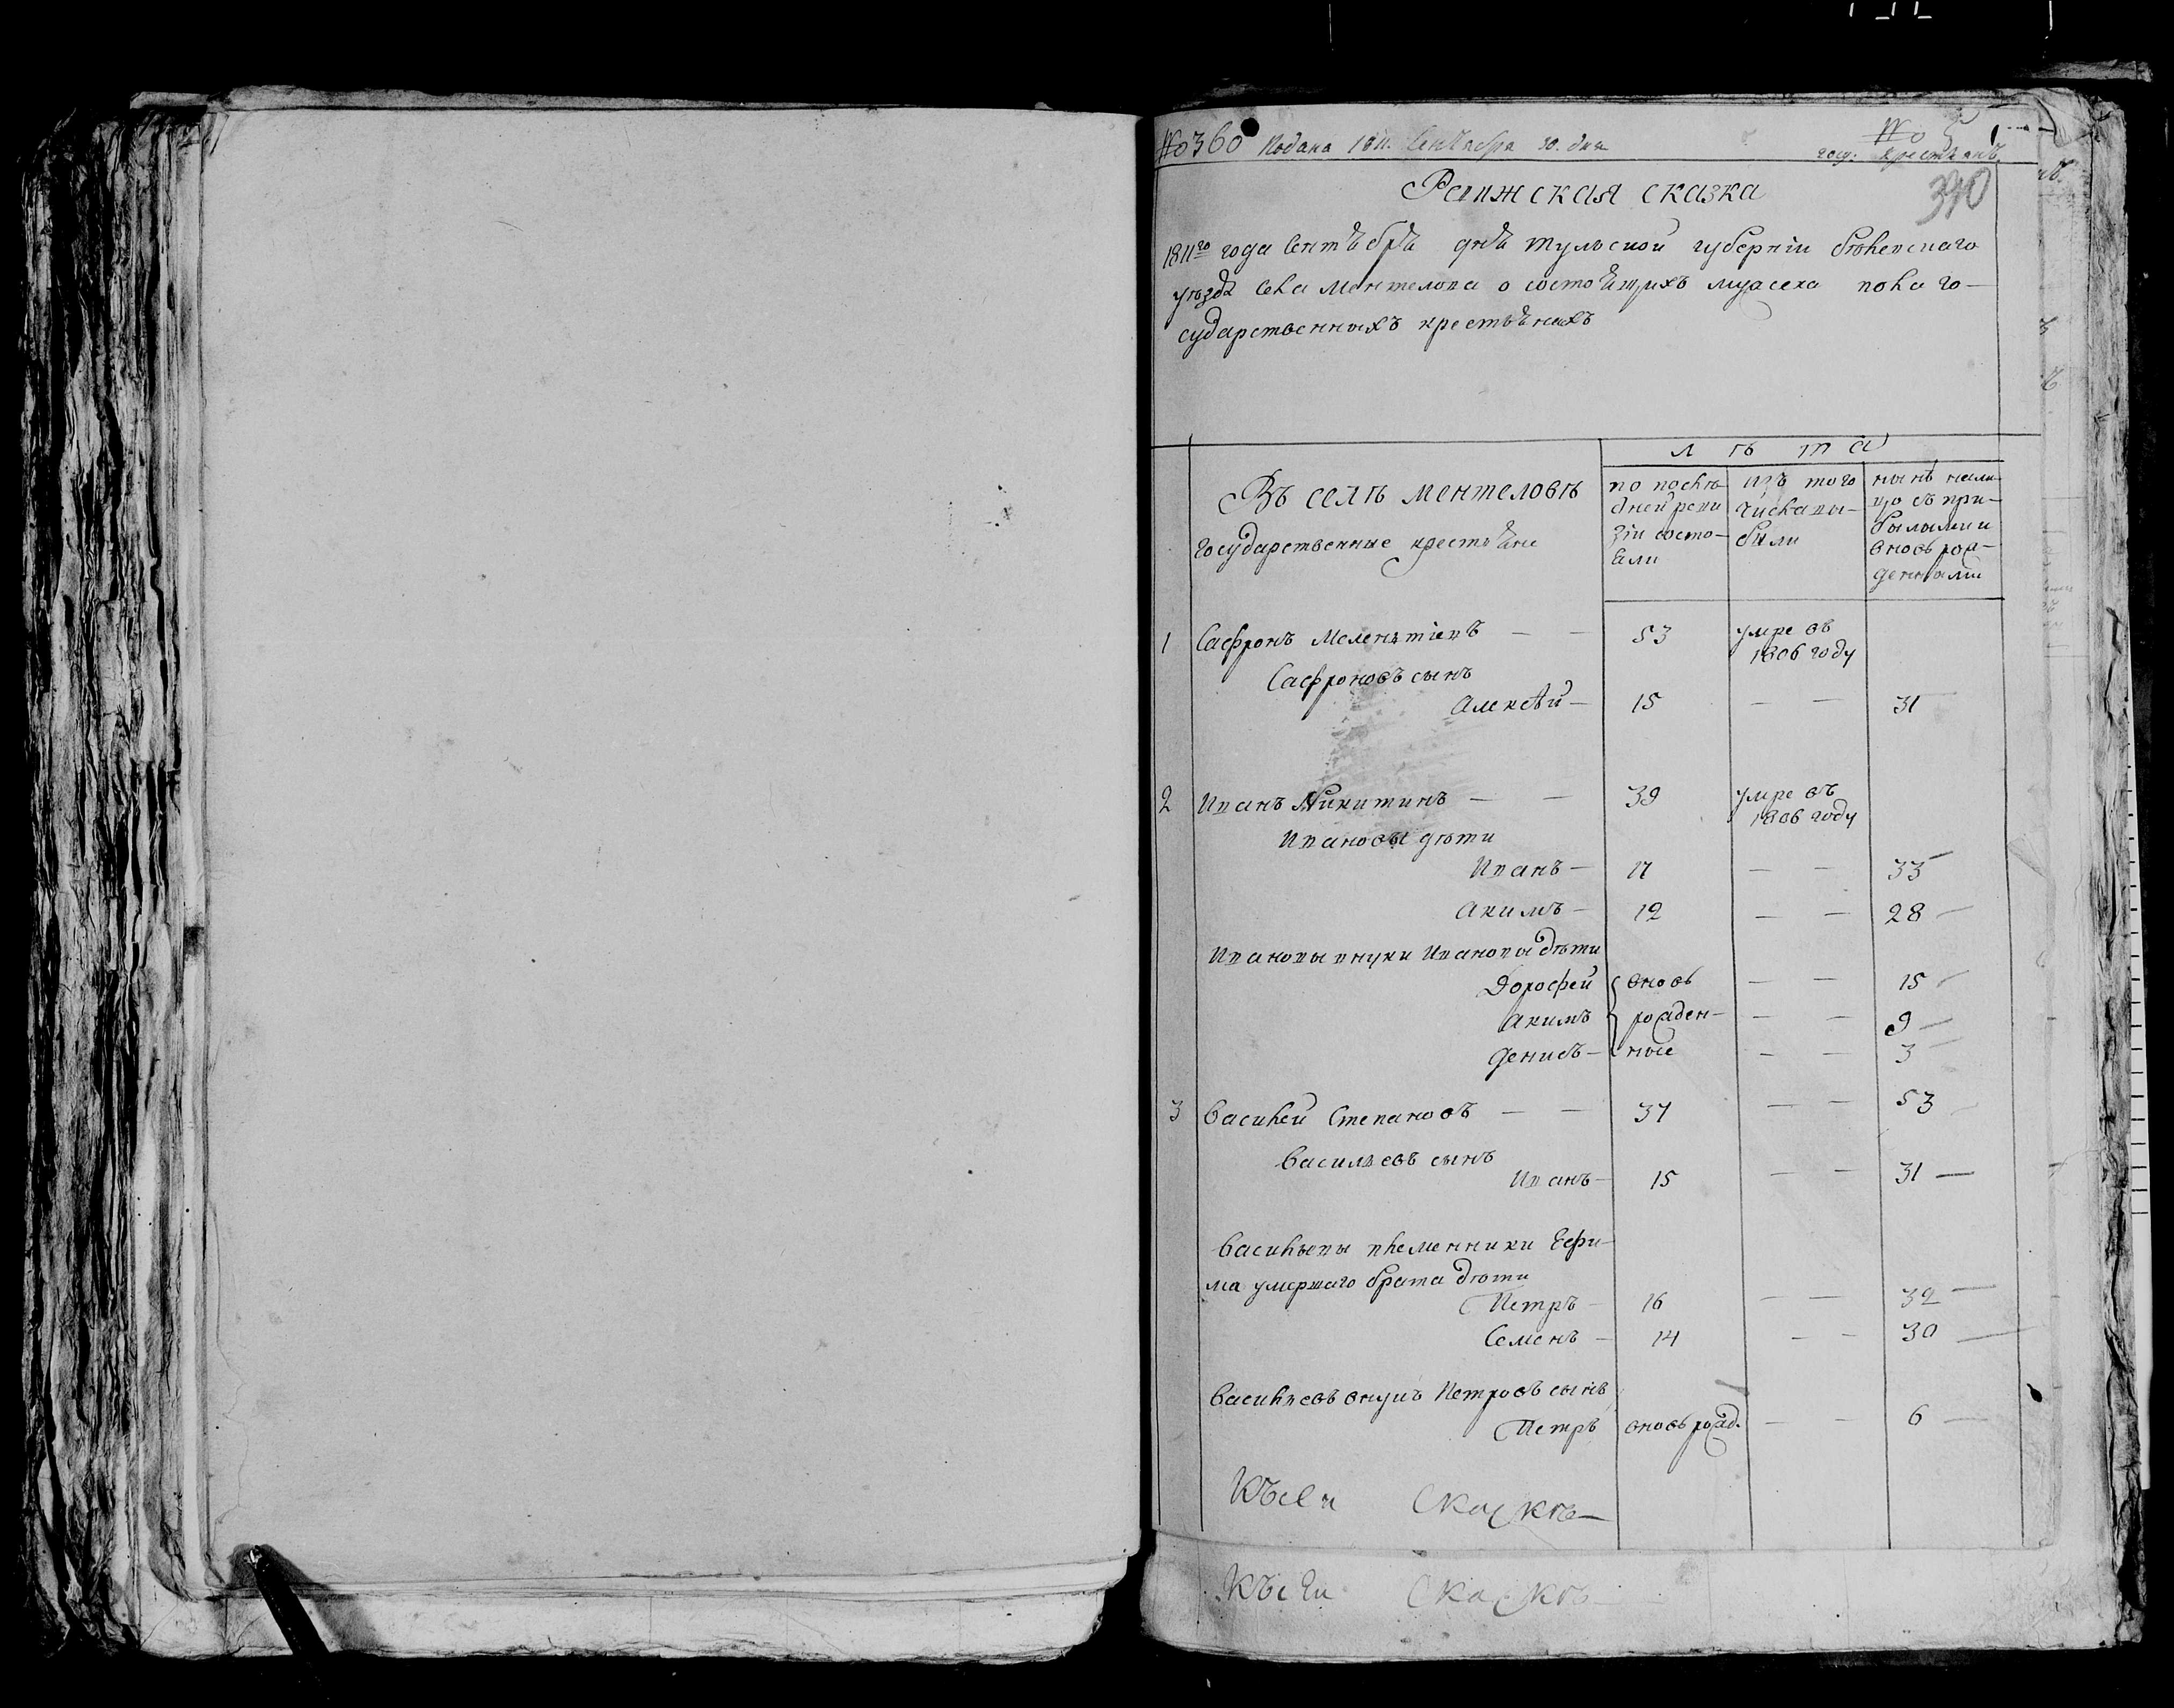 № 360 Подана 1811. Сентября 30. дня
№ 5
госу: крестьянъ
390
Ревижская сказка
1811го года сентебре дня тульской губерніи белевскаго
уезда села ментелова о состоящихъ мужеска пола го-
сударственныхъ крестьянахъ
лѣта
Въ селѣ ментеловѣ
государственные крестьяне
по послѣ-
дней реви
зіи состо-
яли
изъ того
числа вы-
были
нынѣ нали-
цо съ при-
былыми и
вновь рож-
денными
1 Сафронъ Мелентіевъ — — 53 умре въ
1806 году
Сафроновъ сынъ
Алексѣй — 15 — — 31
2 Иванъ Никитинъ — — 39 умре въ
1806 году
Ивановы дѣти
Иванъ — 17 — — 33 —
Акимъ — 12 — — 28 —
Ивановы внуки Ивановы дѣти
Дорофей вновь — — 15
Акимъ рожден- — — 9 —
Денисъ — ные — — 3 —
3 Василей Степановъ — — 37 — — 53
Васильевъ сынъ
Иванъ — 15 — — 31 —
Васильевы племенники Ефи-
ма умершаго брата дѣти
Петръ — 16 — — 32 —
Семенъ — 14 — — 30 —
Васильевъ внукъ Петровъ сынъ
Петръ вновь рожд. — — 6 —
Къ сей Скаскѣ —
Къ сей Скаскѣ —